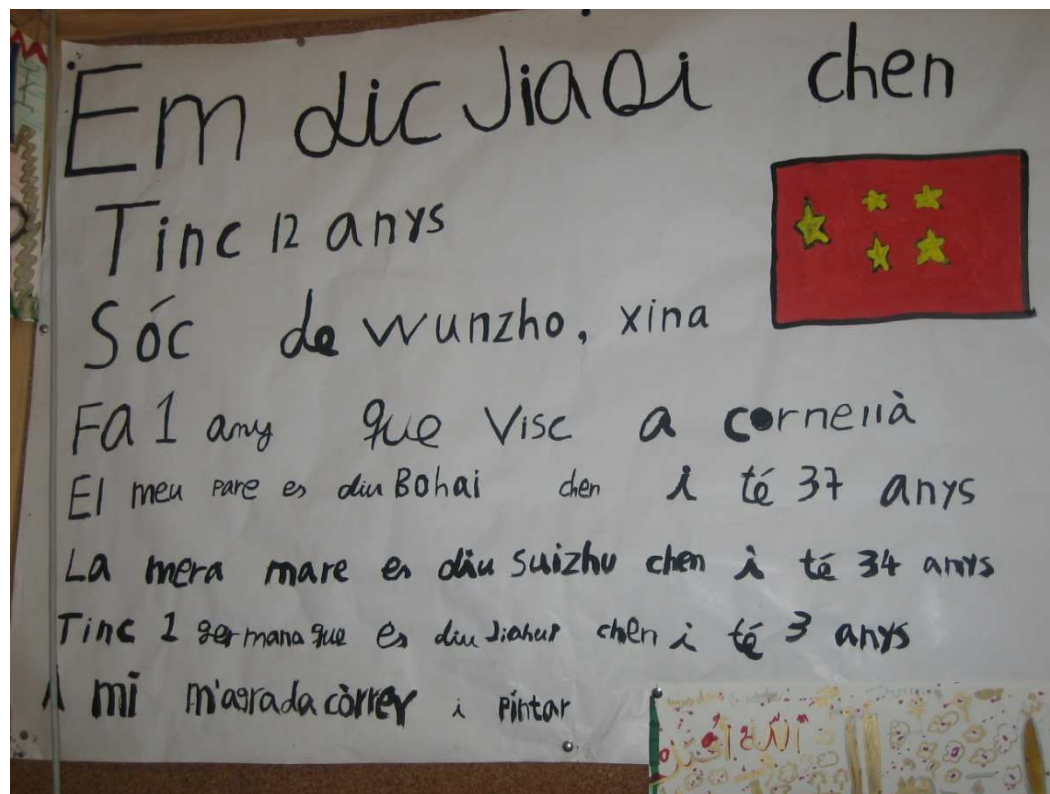 Em dic JiaQi chen
Tinc 12 anys
Sóc de wunzho, xina
Fa 1 any que visc a cornellà
El meu pare es diu Bohai chen i té 37 anys
La mera mare es diu suizhu chen i té 34 anys
Tinc 1 germana que es diu chen i té 3 anys
A mi m'agrada còrrer i pintar